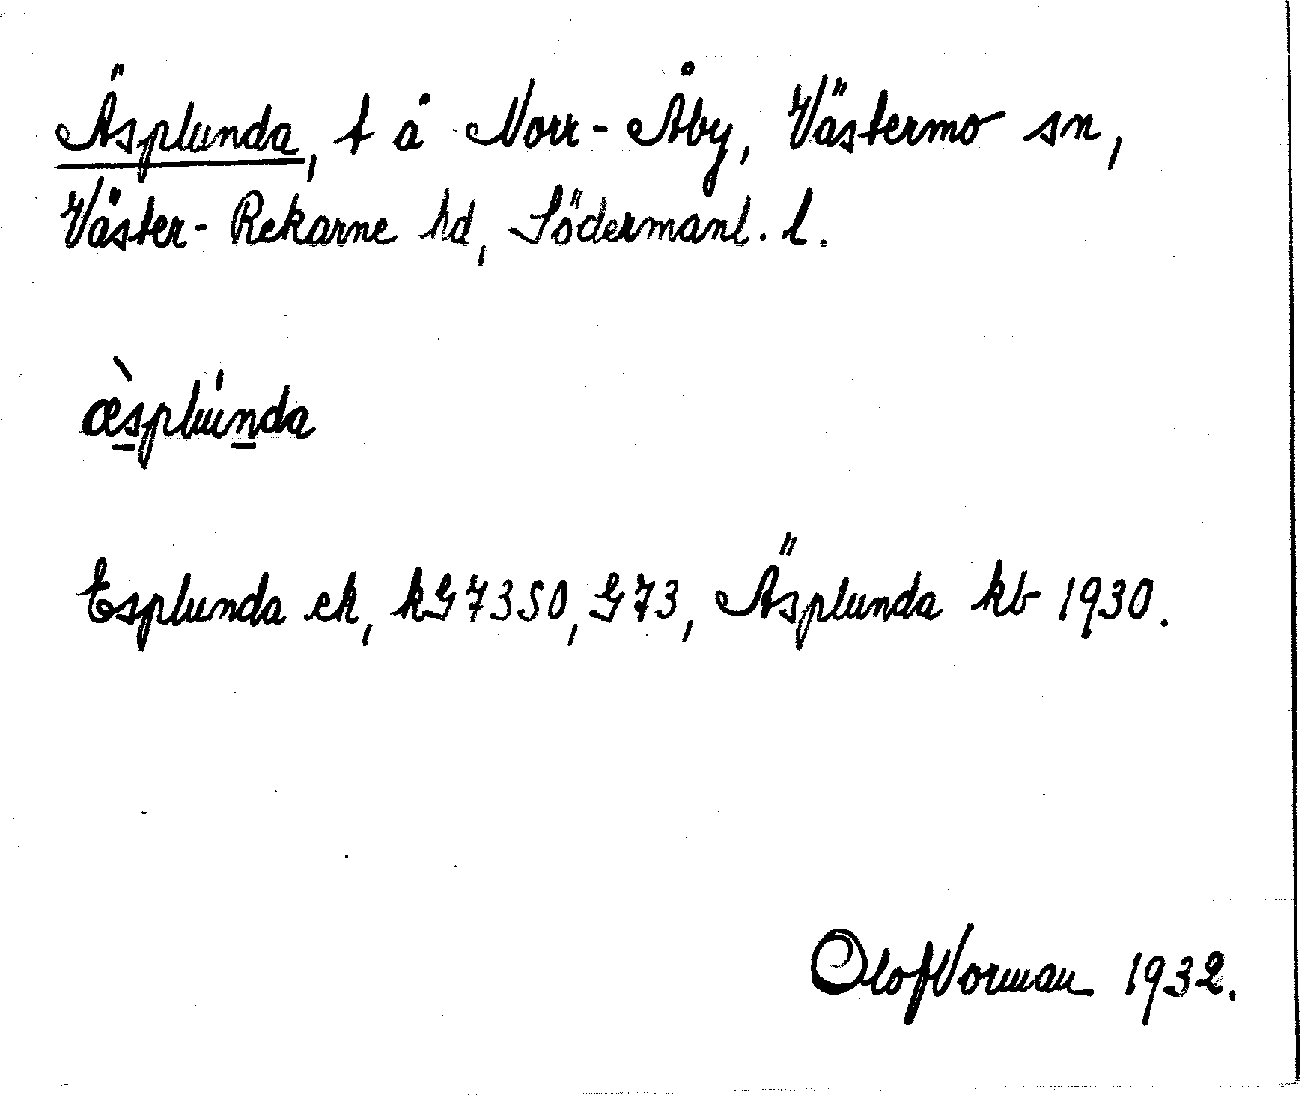 Äsplunda, t å Norr-Åby, Västermo sn,
Väster-Rekarne hd, Södermanl. l.
æ̀splúnda
Esplunda ek, hG7350, G73, Äsplunda kb 1930.
Olof Norman 1932.